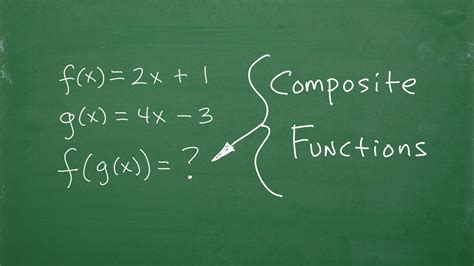 f(x) = 2x + 1
g(x) = 4x − 3
f(g(x)) = ?
Composite
Functions